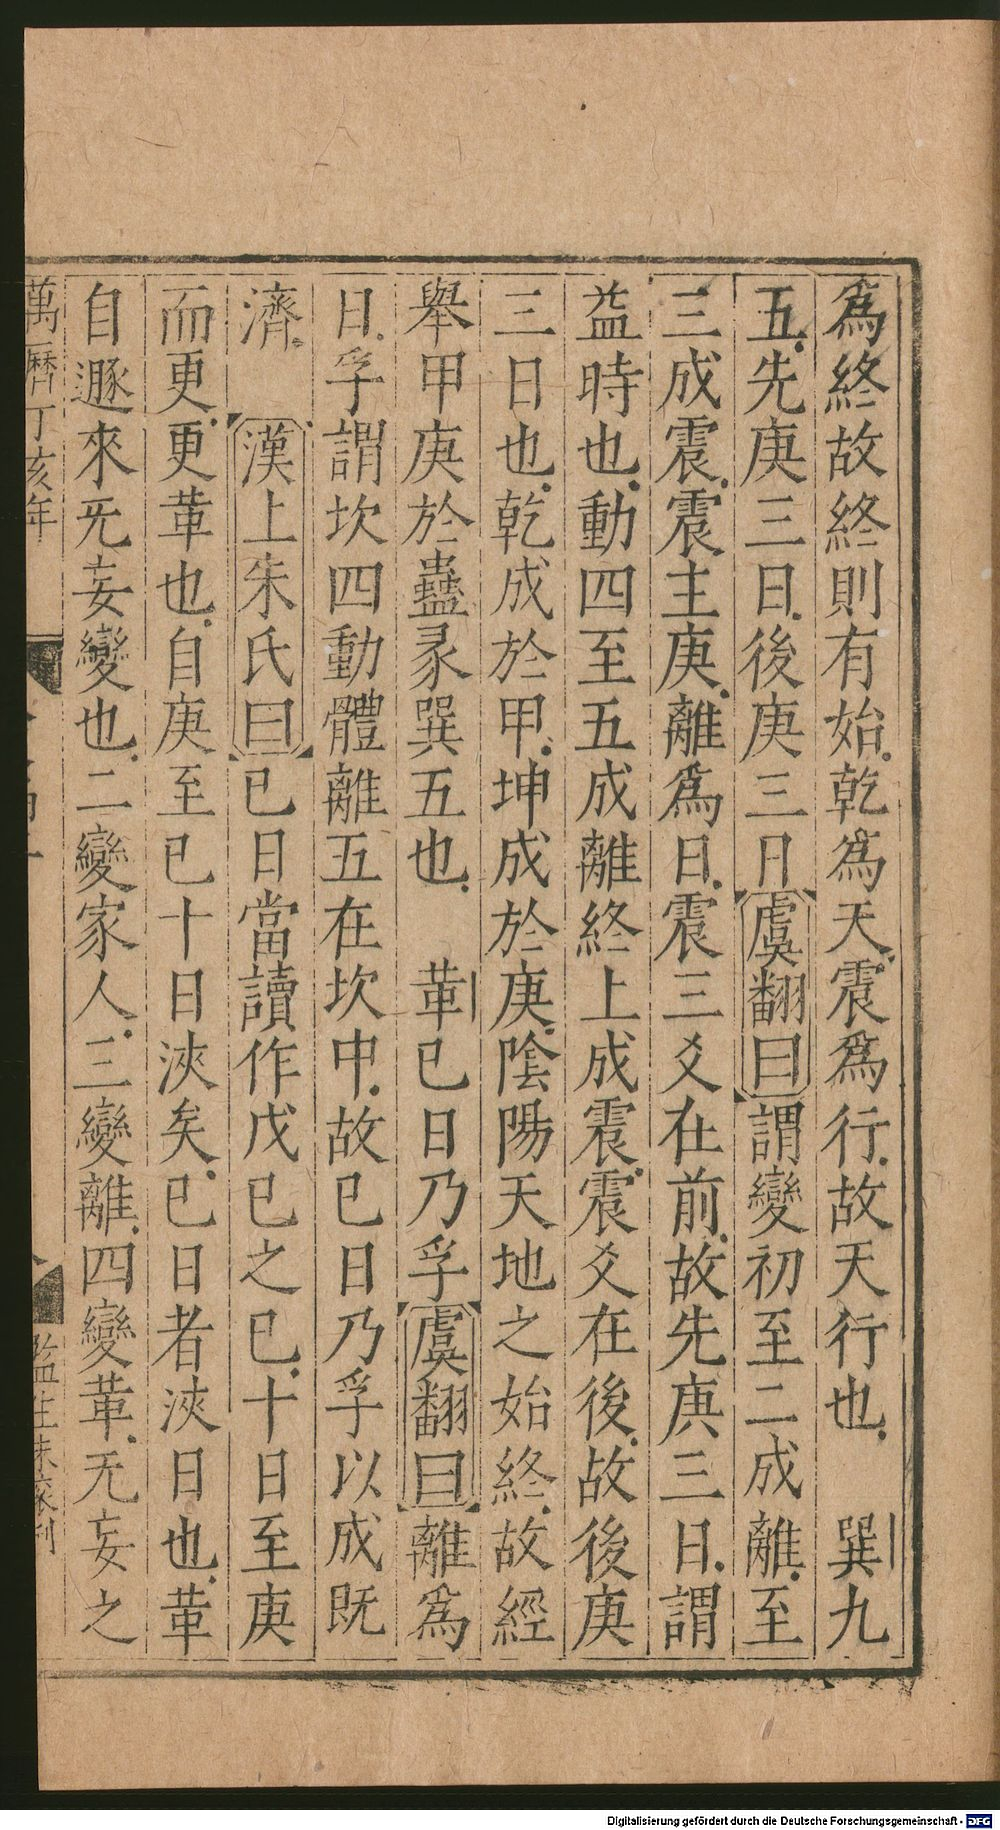 爲終故終則有始乾爲天震爲行故天行也　巽九
五先庚三日後庚三日虞翻曰謂變初至二成離至
三成震震主庚離爲日震三爻在前故先庚三日謂
益時也動四至五成離終上成震震爻在後故後庚
三日也乾成於甲坤成於庚陰陽天地之始終故經
舉甲庚於蠱彖巽五也　革已日乃孚虞翻曰離爲
日孚謂坎四動體離五在坎中故已日乃孚以成既
濟　漢上朱氏曰已日當讀作戊已之已十日至庚
而更更革也自庚至已十日浹矣已日者浹日也革
自遯來无妄變也二變家人三變離四變革无妄之
萬曆丁亥年
監生
刊
Digitalisierung gefördert durch die Deutsche Forschungsgemeinschaft - DFG